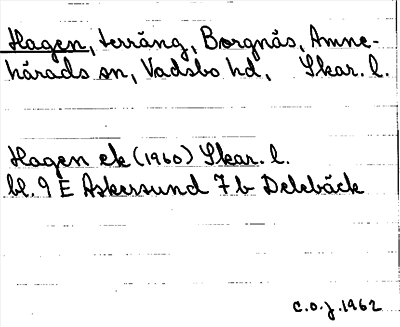 Hagen, terräng, Borgnäs, Amne-
härads sn, Vadsbo hd, Skar. l.
Hagen ek (1960) Skar. l.
bl. 9 E Askersund 7 b Delebäck
C.O.J. 1962